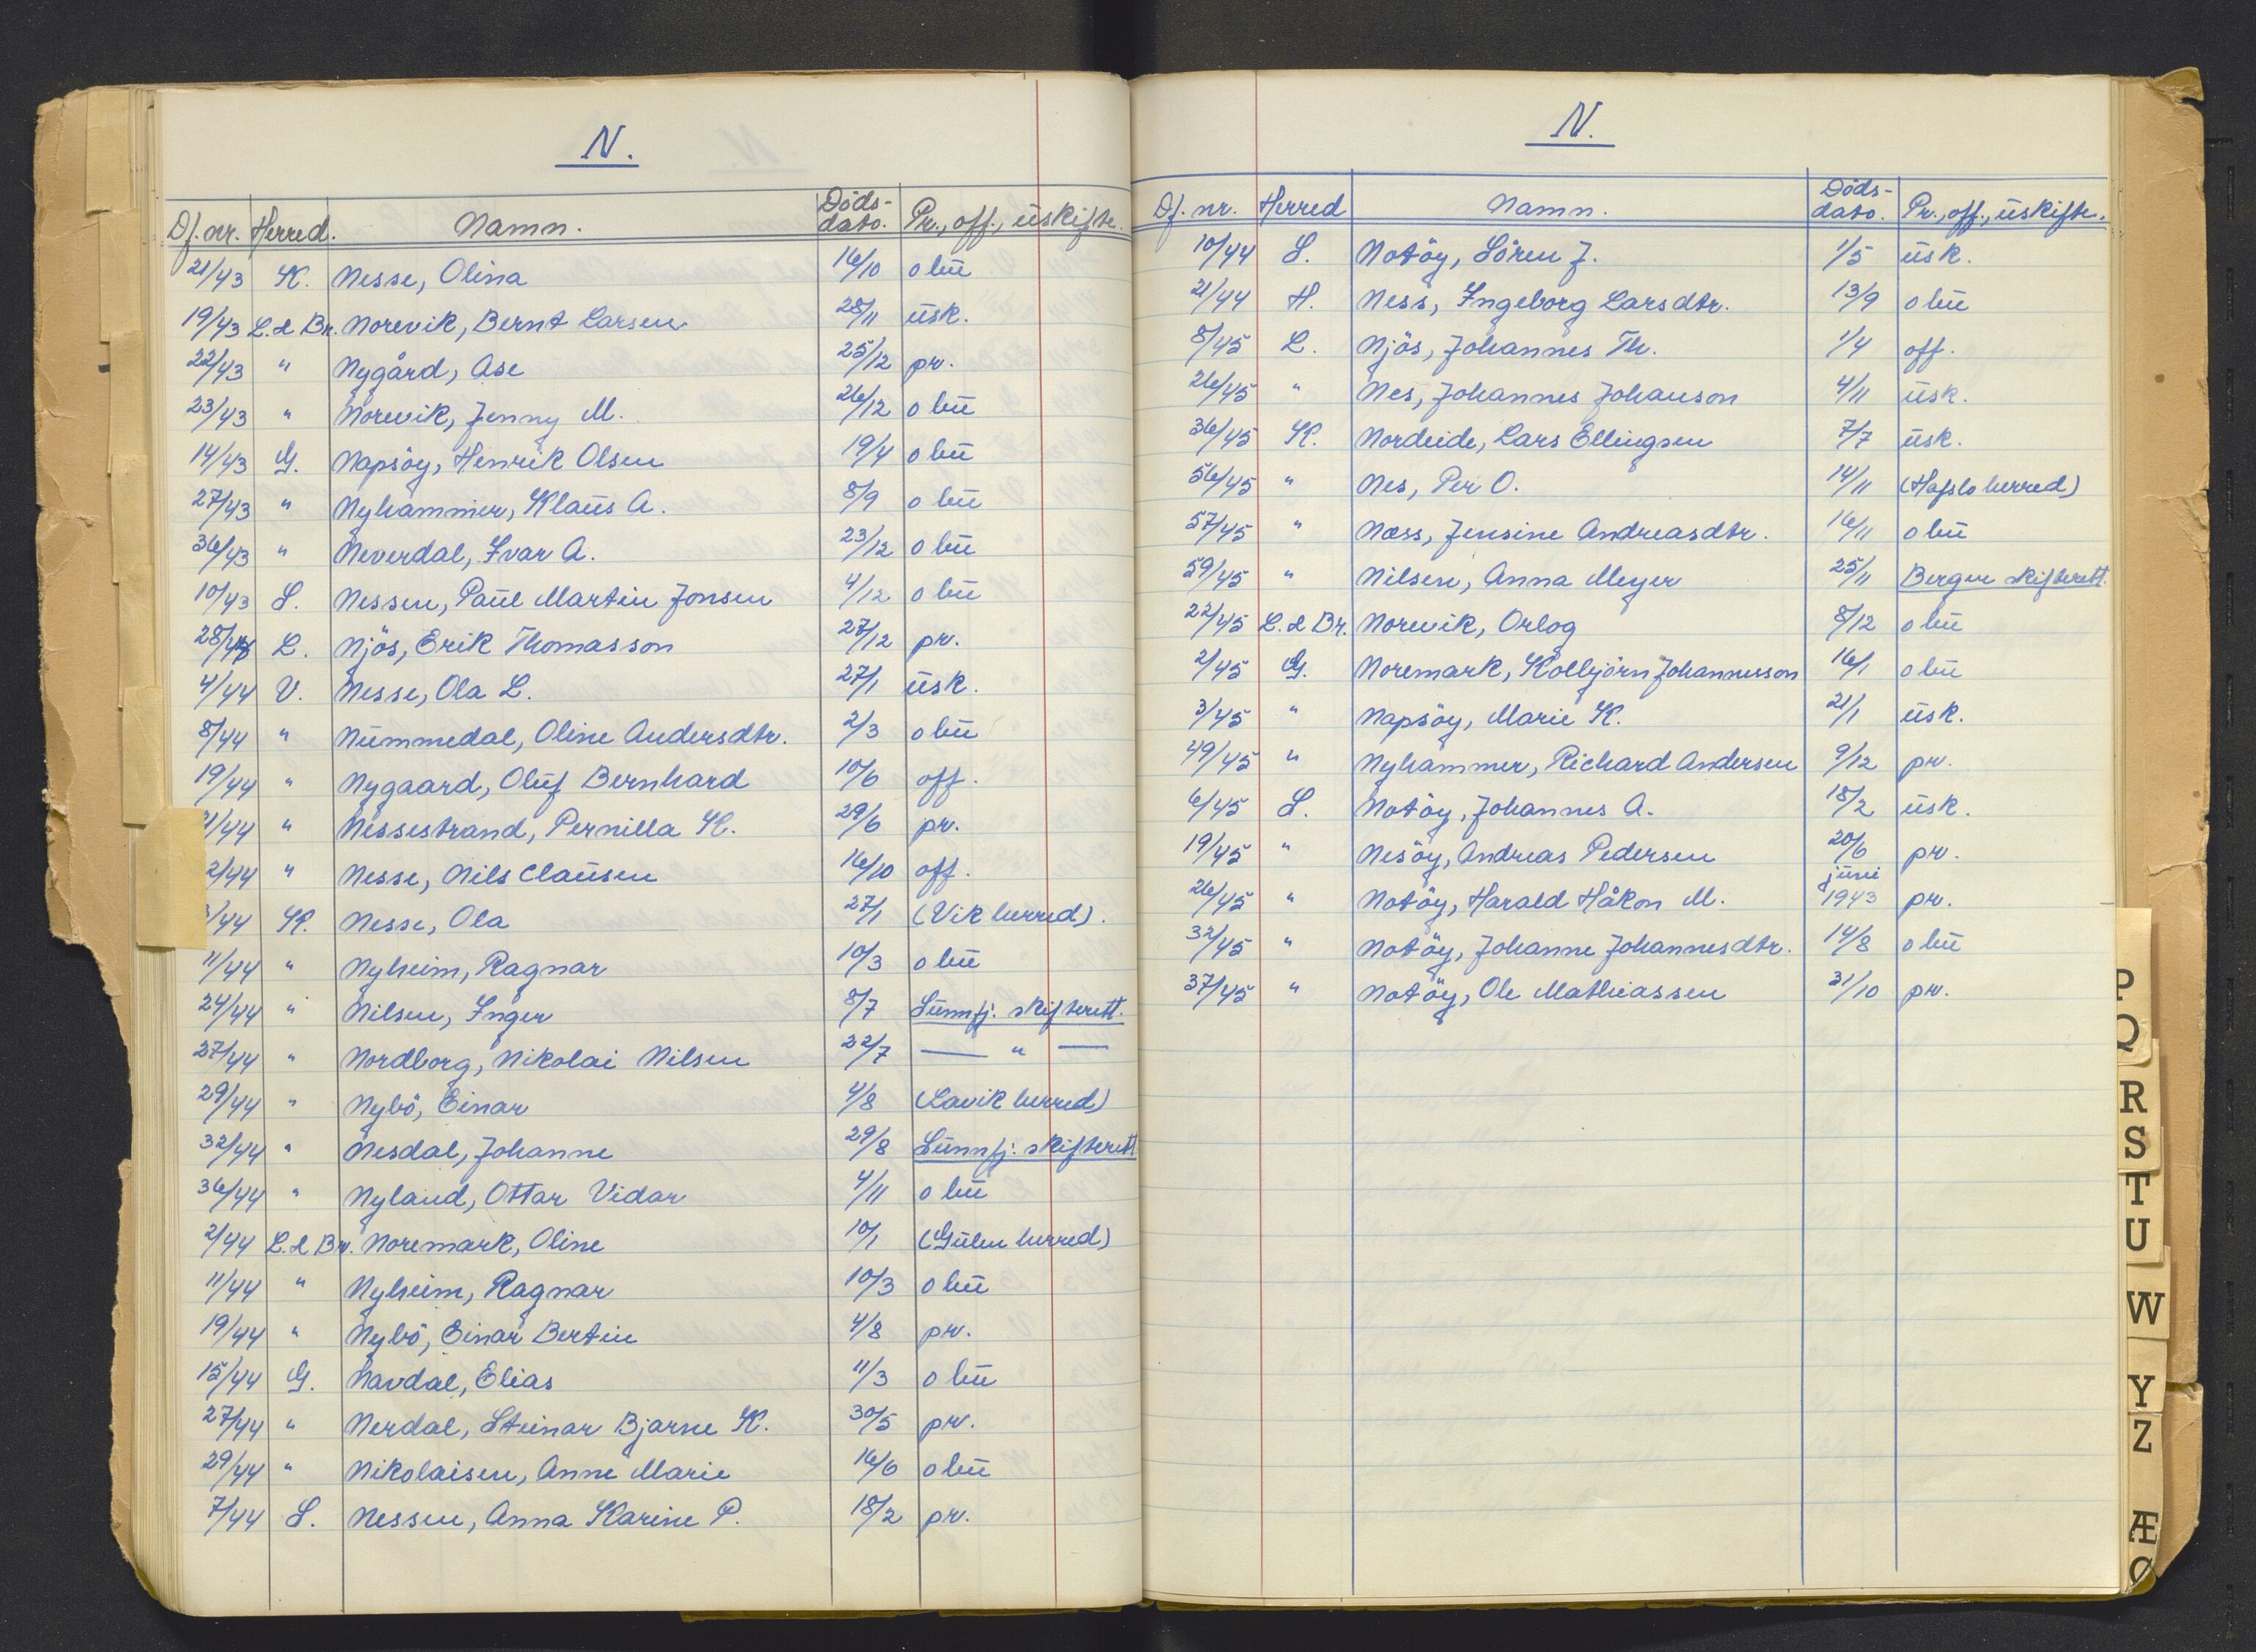 N.
Df. nr. Herred. Namn. Döds-dato. Pr., off., uskifte.
21/43 K. Nesse, Olina 16/10 o bu
19/43 L. & Br. Norevik, Bernt Larsen 28/11 usk.
22/43 " Nygård, Ase 25/12 pr.
23/43 " Norevik, Jenny M. 26/12 o bu
14/43 G. Napsöy, Henrik Olsen 19/4 o bu
27/43 " Nyhammer, Klaus A. 8/9 o bu
36/43 " Neverdal, Ivar A. 23/12 o bu
10/43 S. Nessen, Paul Martin Jonsen 4/12 o bu
28/43 L. Njös, Erik Thomasson 27/12 pr.
4/44 V. Nesse, Ola L. 27/1 usk.
8/44 " Nummedal, Oline Andersdtr. 2/3 o bu
19/44 " Nygaard, Oluf Bernhard 10/6 off.
1/44 " Nessestrand, Pernilla K. 29/6 pr.
2/44 " Nesse, Nils Clausen 16/10 off.
/44 K. Nesse, Ola 27/1 (Vik herred).
11/44 " Nyheim, Ragnar 10/3 o bu
24/44 " Nilsen, Inger 8/7 Sunnfj. skifterett.
27/44 " Nordborg, Nikolai Nilsen 22/7 — " —
29/44 " Nybö, Einar 4/8 (Lavik herred)
32/44 " Nesdal, Johanne 29/8 Sunnfj. skifterett
36/44 " Nyland, Ottar Vidar 4/11 o bu
2/44 L. & Br. Noremark, Oline 10/1 (Gulen herred)
11/44 " Nyheim, Ragnar 10/3 o bu
19/44 " Nybö, Einar Bertin 4/8 pr.
15/44 G. Navdal, Elias 11/3 o bu
27/44 " Nerdal, Steinar Bjarne K. 30/5 pr.
29/44 " Nikolaisen, Anne Marie 16/6 o bu
7/44 S. Nessen, Anna Karine P. 18/2 pr.
N.
Df. nr. Herred Namn. Döds-dato. Pr., off., uskifte.
10/44 S. Notöy, Sören J. 1/5 usk.
21/44 H. Ness, Ingeborg Larsdtr. 13/9 o bu
8/45 L. Njös, Johannes Th. 1/4 off.
26/45 " Nes, Johannes Johanson 4/11 usk.
36/45 K. Nordeide, Lars Ellingsen 7/7 usk.
56/45 " Nes, Per O. 14/11 (Hafslo herred)
57/45 " Næss, Jensine Andreasdtr. 16/11 o bu
59/45 " Nilsen, Anna Meyer 25/11 Bergen skifterett.
22/45 L. & Br. Norevik, Orlog 8/12 o bu
2/45 G. Noremark, Kolbjörn Johannesson 16/1 o bu
3/45 " Napsöy, Marie K. 21/1 usk.
49/45 " Nyhammer, Richard Andersen 9/12 pr.
6/45 S. Notöy, Johannes A. 18/2 usk.
19/45 " Nesöy, Andreas Pedersen 20/6 pr.
26/45 " Notöy, Harald Håkon M. juni 1943 pr.
32/45 " Notöy, Johanne Johannesdtr. 14/8 o bu
37/45 " Notöy, Ole Mathiassen 31/10 pr.
P
Q
R
S
T
U
W
Y
Z
Æ
Ø